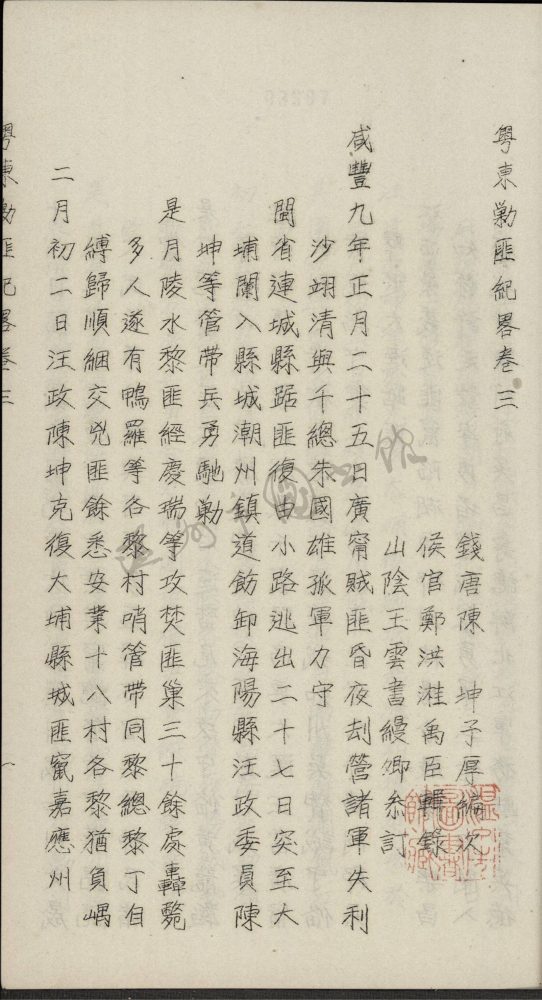 粵東勦匪紀畧卷三
錢唐陳坤子厚編次
侯官鄭洪溎禹臣輯錄
山陰王雲書縵卿叅訂
咸豐九年正月二十五日廣甯賊匪昏夜刦營諸軍失利
沙翊清與千總朱國雄孤軍力守
閩省連城縣踞匪復由小路逃出二十七日突至大
埔闌入縣城潮州鎮道飭卸海陽縣汪政委員陳
坤等管帶兵勇馳勦
是月陵水黎匪經慶瑞等攻焚匪巢三十餘處轟斃
多人遂有鴨羅等各黎村哨管帶同黎總黎丁自
縛歸順綑交兇匪餘悉安業十八村各黎猶負嵎
二月初二日汪政陳坤克復大埔縣城匪竄嘉應州
粵東勦匪紀畧卷三
一